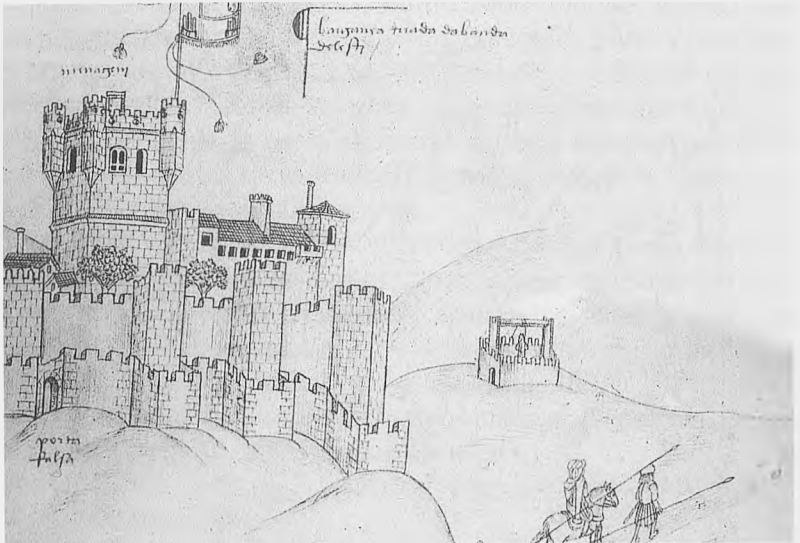 bargança tirada dabanda
deleste
menagem
porta
falsa